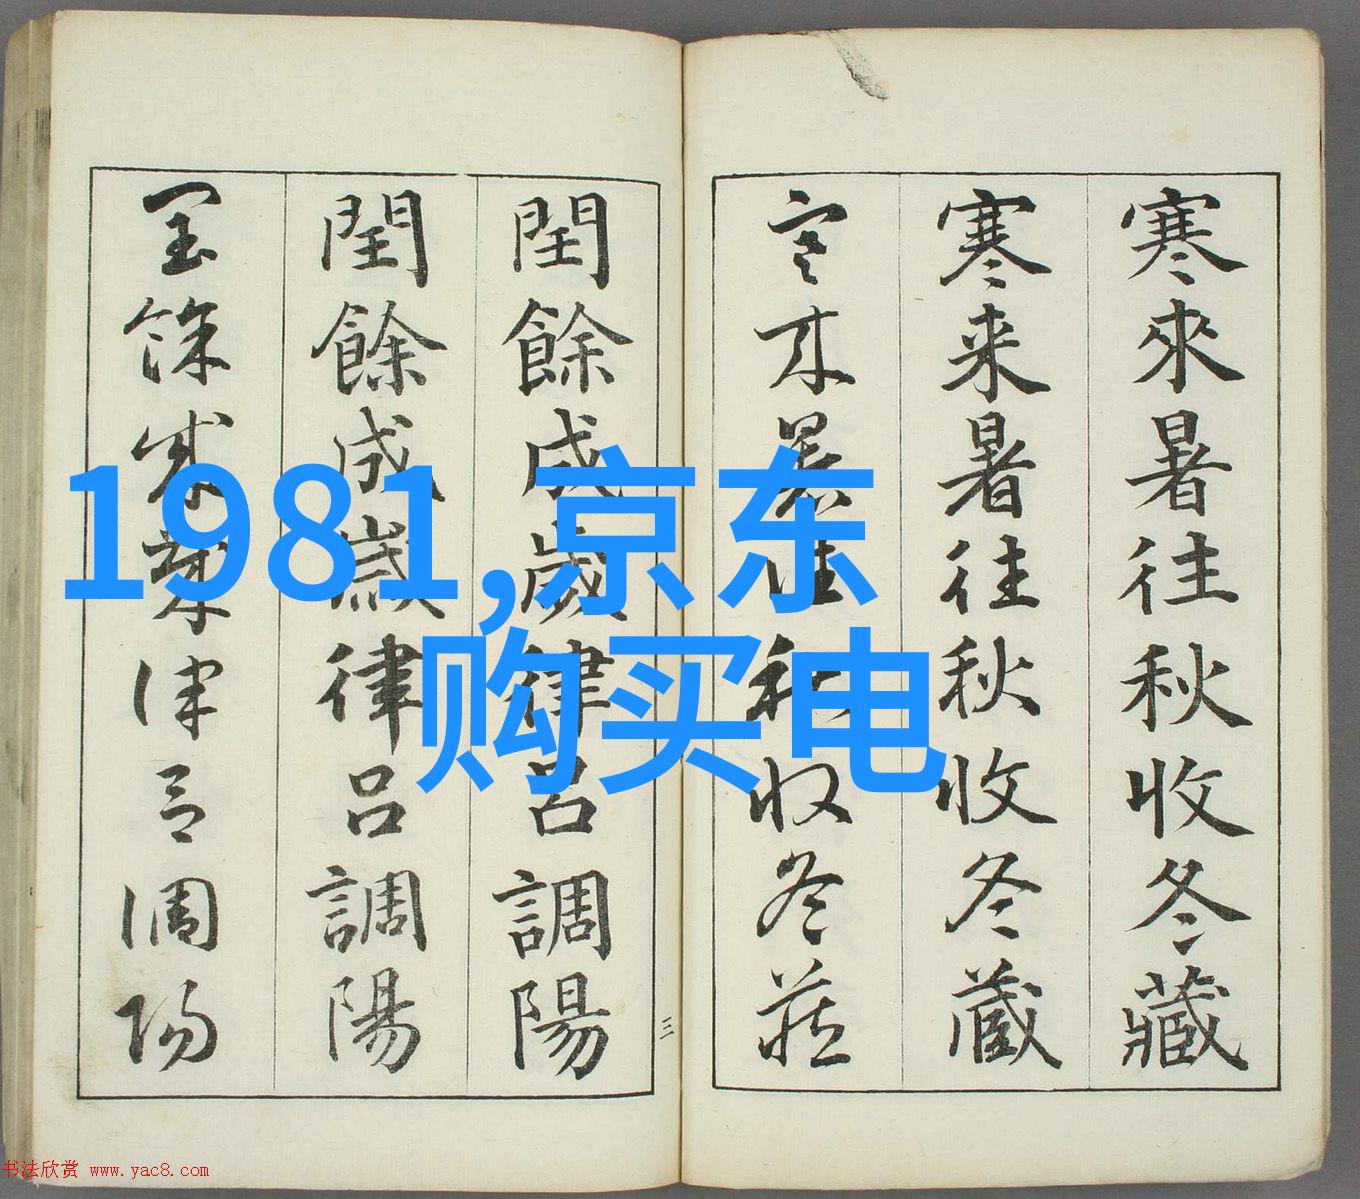 寒來暑往秋收冬藏
寒来暑往秋收冬蔵
寒来暑往秋収冬蔵
閏餘成歲律呂調陽
閏餘成歳律呂調陽
閏餘成歳律呂調陽
三
1981,京东
购买电
书法欣赏 www.yac8.com